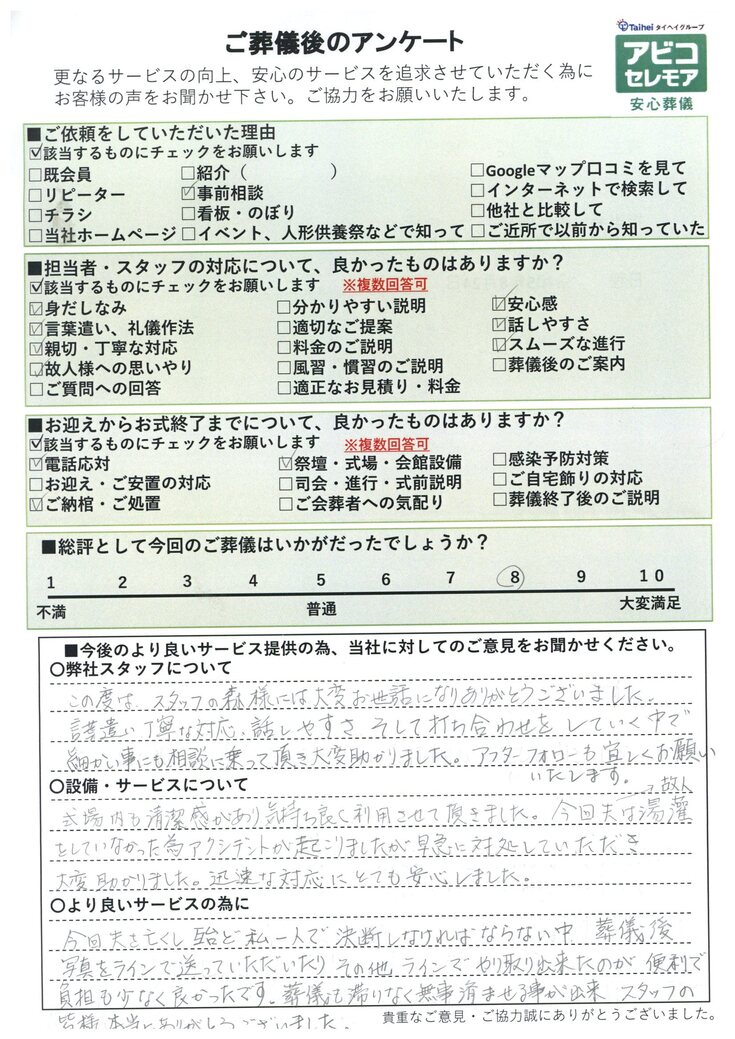 ご葬儀後のアンケート
Taihei タイヘイグループ
アビコ
セレモア
安心葬儀
更なるサービスの向上、安心のサービスを追求させていただく為に
お客様の声をお聞かせ下さい。ご協力をお願いいたします。
■ご依頼をしていただいた理由
☑該当するものにチェックをお願いします
□既会員 □紹介（　　　　　） □Googleマップ口コミを見て
□リピーター ☑事前相談 □インターネットで検索して
□チラシ □看板・のぼり □他社と比較して
□当社ホームページ □イベント、人形供養祭などで知って □ご近所で以前から知っていた
■担当者・スタッフの対応について、良かったものはありますか？
☑該当するものにチェックをお願いします ※複数回答可
☑身だしなみ □分かりやすい説明 ☑安心感
☑言葉遣い、礼儀作法 □適切なご提案 ☑話しやすさ
☑親切・丁寧な対応 □料金のご説明 ☑スムーズな進行
☑故人様への思いやり □風習・慣習のご説明 □葬儀後のご案内
□ご質問への回答 □適正なお見積り・料金
■お迎えからお式終了までについて、良かったものはありますか？
☑該当するものにチェックをお願いします ※複数回答可
☑電話応対 ☑祭壇・式場・会館設備 □感染予防対策
□お迎え・ご安置の対応 □司会・進行・式前説明 □ご自宅飾りの対応
☑ご納棺・ご処置 □ご会葬者への気配り □葬儀終了後のご説明
■総評として今回のご葬儀はいかがだったでしょうか？
1 2 3 4 5 6 7 8 9 10
不満 普通 大変満足
■今後のより良いサービス提供の為、当社に対してのご意見をお聞かせください。
〇弊社スタッフについて
この度は、スタッフの森様には大変お世話になりありがとうございました。
言葉遣い、丁寧な対応、話しやすさ そして打ち合わせを していく中で
細かい事にも相談に乗って頂き大変助かりました。アフターフォローも宜しくお願い
いたします。
〇設備・サービスについて
→故人
式場内も清潔感があり気持ち良く利用させて頂きました。今回夫は湯灌
をしていなかった為アクシデントが起こりましたが早急に対処していただき
大変助かりました。迅速な対応にとても安心しました。
〇より良いサービスの為に
今回夫を亡くし 殆ど私一人で決断しなければならない中 葬儀後
写真をラインで送っていただいたり その他 ラインで やり取り出来たのが 便利で
負担も少なく良かったです。葬儀も滞りなく無事済ませる事が出来 スタッフの
皆様 本当にありがとうございました。
貴重なご意見・ご協力誠にありがとうございました。